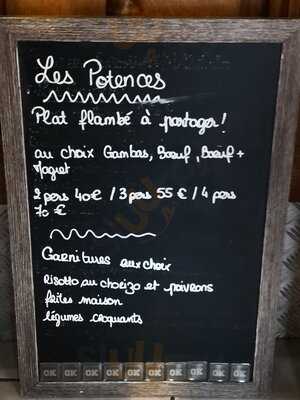 Les Potences
Plat flambé à partager!
au choix Gambas, Bœuf, Bœuf +
Magret
2 pers 40€ / 3 pers 55 € / 4 pers
70 €
Garnitures aux choix
Risotto au chorizo et poivrons
frites maison
légumes croquants
OK OK OK OK OK OK OK OK OK OK